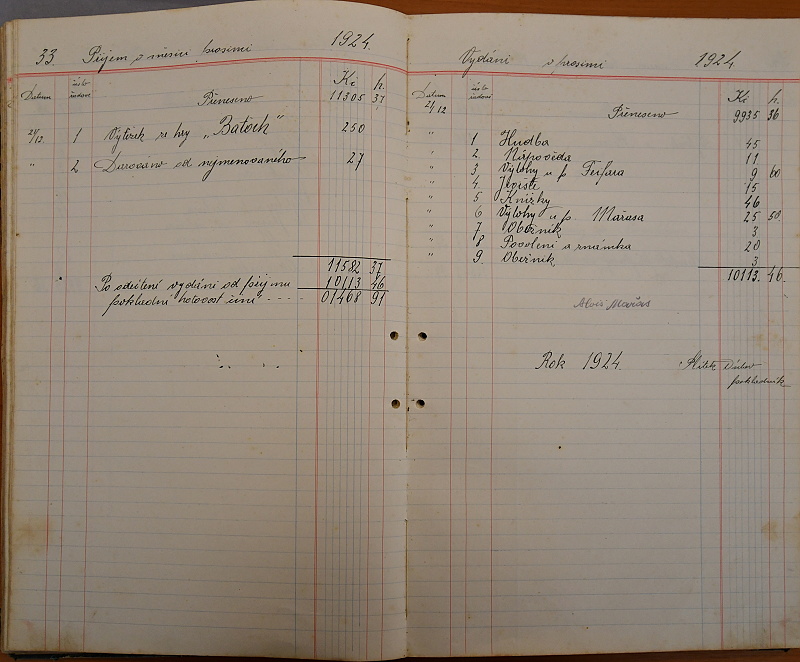 33 Příjem v měsíci prosinci 1924.
Datum číslo Kč h.
Přeneseno 11305 37
21/12. 1 Výtěžek ze hry „Batoch" 250
" 2 Darováno od nejmenovaného 27
11582 37
Po odečtení vydání od příjmu 10113 46
pokladní hotovost činí 01468 91
Vydání v prosinci 1924
Datum číslo Kč h.
21/12 Přeneseno 9935 36
" 1 Hudba 45
" 2. Nápověda 11
" 3 Výlohy u p. 9 60
" 4. Jeviště 15
" 5 Knížky 46
" 6 Výlohy u p. Mařasa 25 50
" 7 Oběžník 3
" 8 Povolení a známka 20
" 9. Oběžník 3
10113. 46.
Alois Mařas
Rok 1924.
pokladník